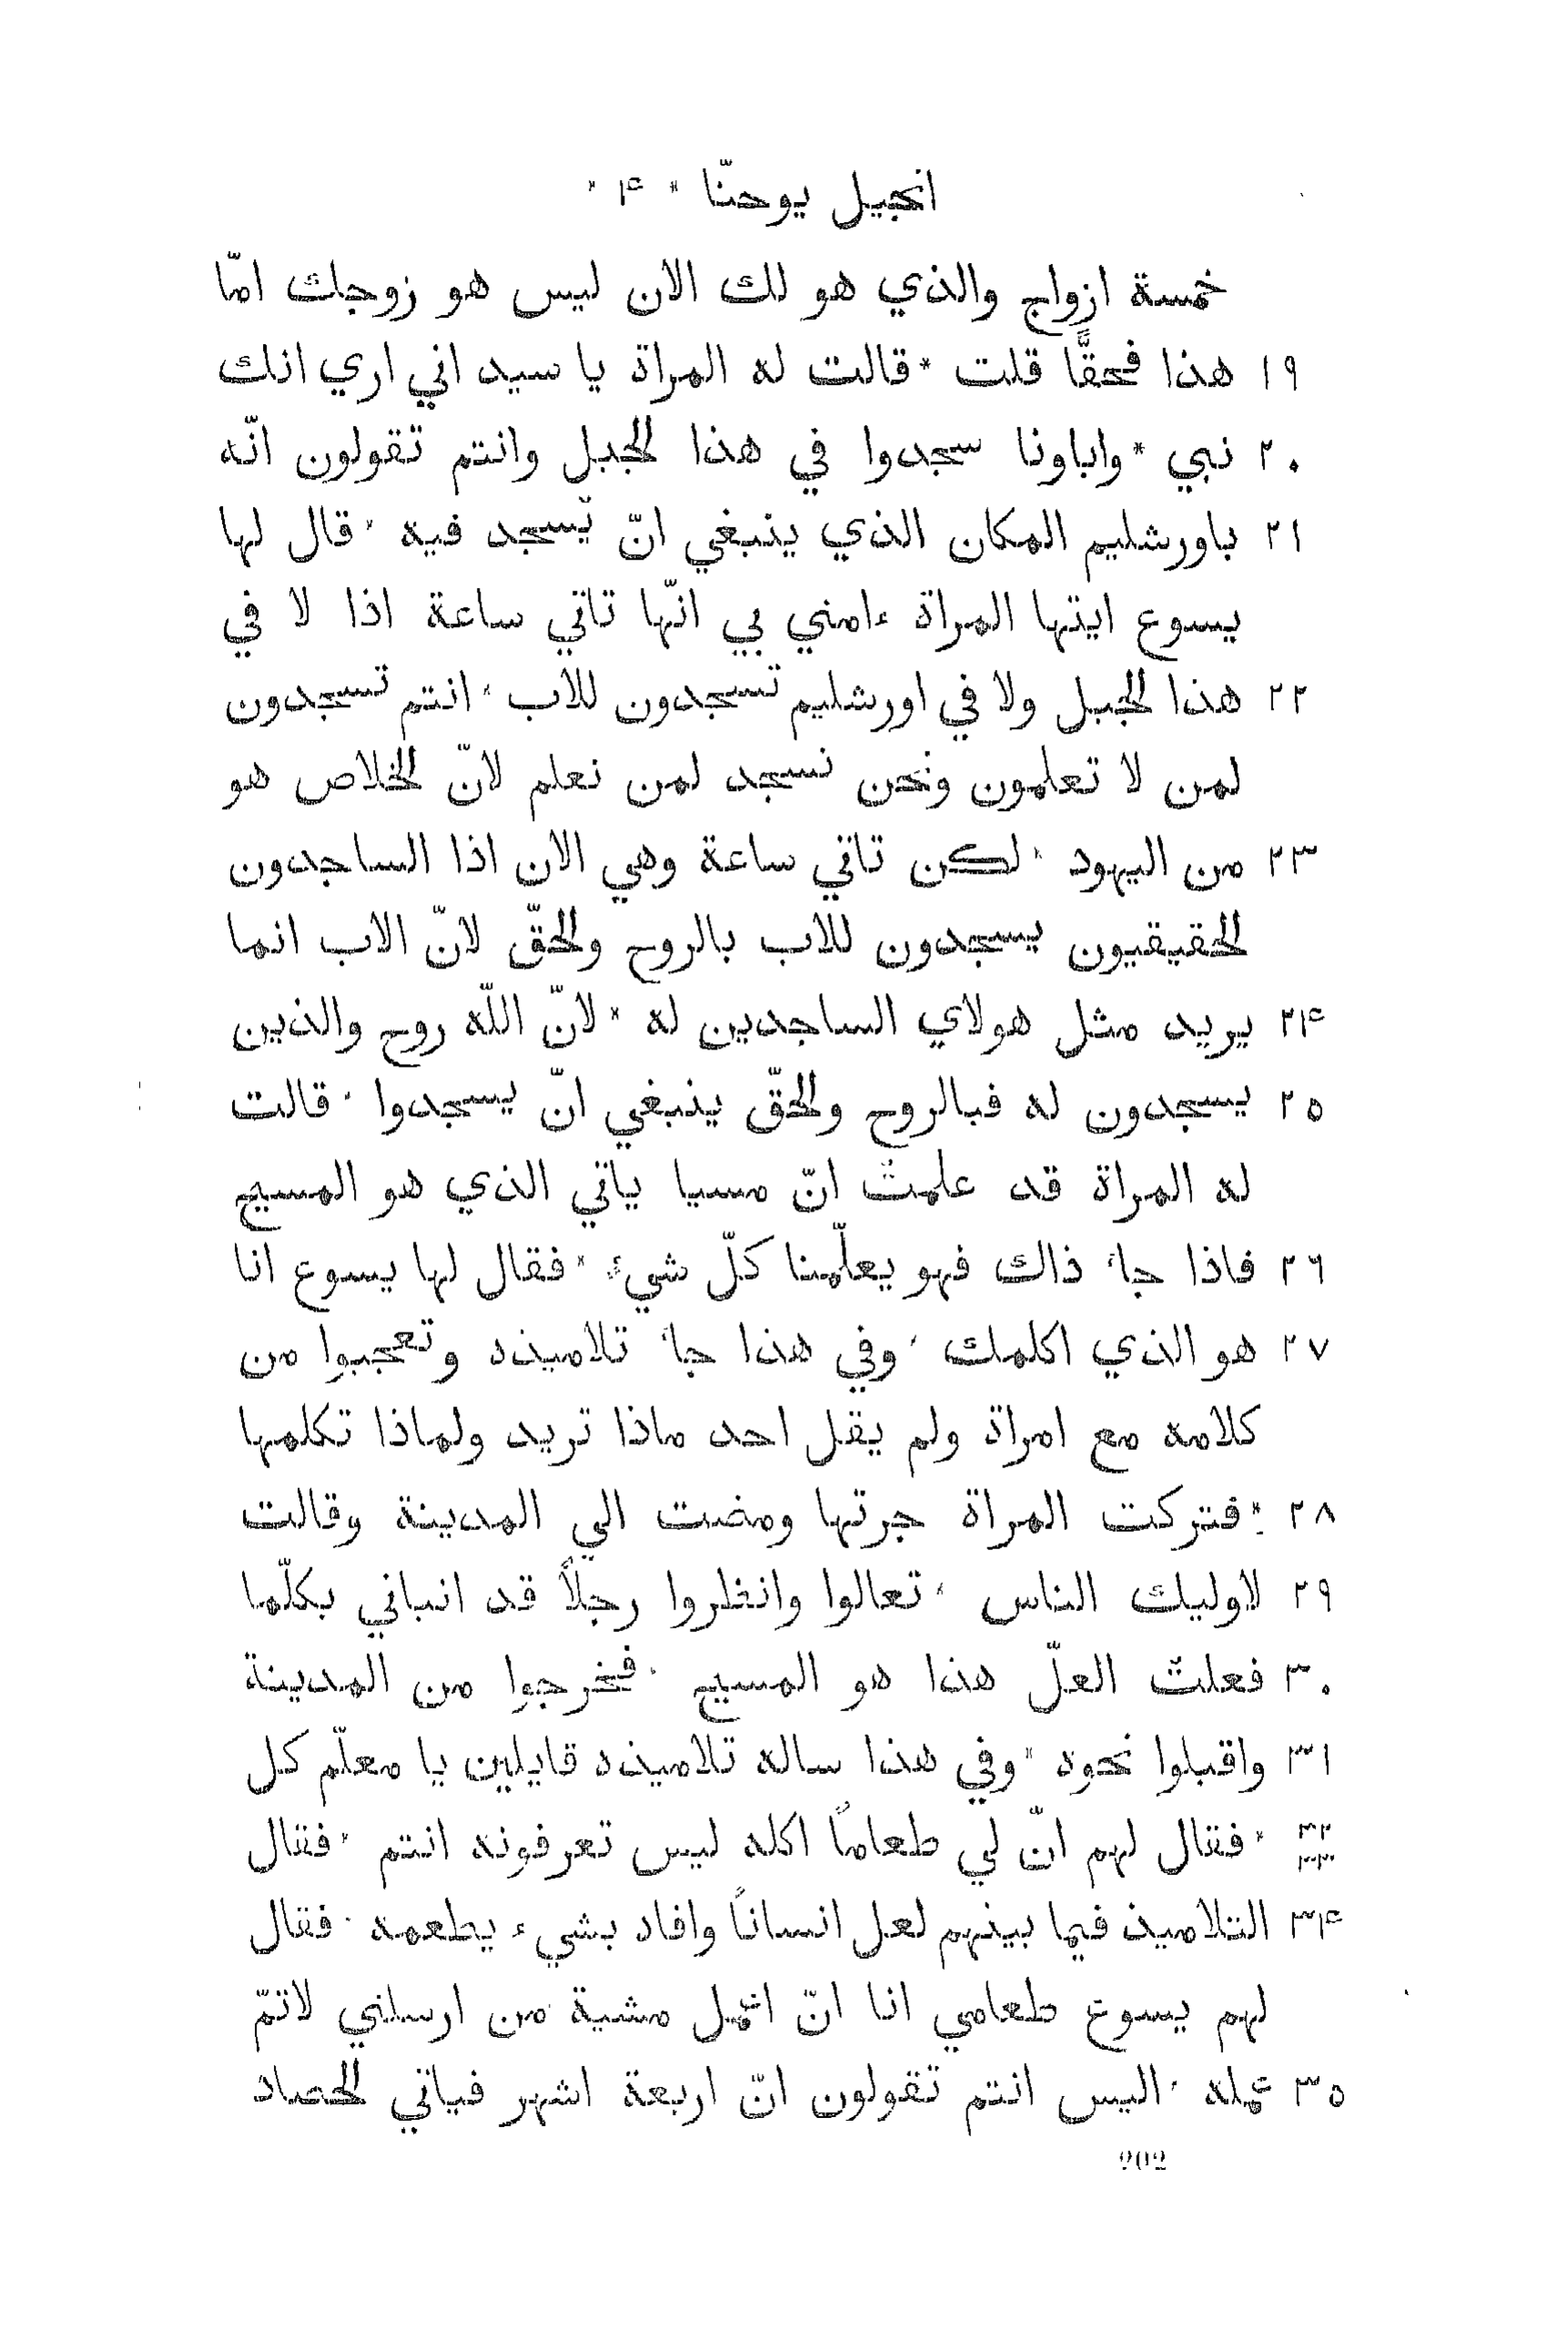 انجيل يوحنّا * ۴ *
خمسة ازواج والذي هو لك الان ليس هو زوجك امّا
١٩ هذا فحقًّا قلت * قالت له المراة يا سيد اني اري انك
٢٠ نبي * واباونا سجدوا في هذا الجبل وانتم تقولون انّه
٢١ باورشليم المكان الذي ينبغي انّ يّسجد فيه * قال لها
يسوع ايتها المراة ءامني بي انّها تاتي ساعة اذا لا في
٢٢ هذا الجبل ولا في اورشليم تسجدون للاب * انتم تسجدون
لمن لا تعلمون ونحن نسجد لمن نعلم لانّ الخلاص هو
٢٣ من اليهود * لكن تاتي ساعة وهي الان اذا الساجدون
الحقيقيون يسجدون للاب بالروح والحقّ لانّ الاب انما
٢۴ يريد مثل هولاي الساجدين له * لانّ اللّه روح والذين
٢٥ يسجدون له فبالروح والحقّ ينبغي انّ يسجدوا * قالت
له المراة قد علمتْ انّ مسيا ياتي الذي هو المسيح
٢٦ فاذا جاء ذاك فهو يعلّمنا كلّ شيء * فقال لها يسوع انا
٢٧ هو الذي اكلمك * وفي هذا جاء تلاميذه وتعجبوا من
كلامه مع امراة ولم يقل احد ماذا تريد ولماذا تكلمها
٢٨ * فتركت المراة جرتها ومضت الي المدينة وقالت
٢٩ لاوليك الناس * تعالوا وانظروا رجلاً قد انباني بكلّما
٣٠ فعلتْ العلّ هذا هو المسيح * فخرجوا من المدينة
٣١ واقبلوا نحوه * وفي هذا ساله تلاميذه قايلين يا معلّم كل
٣٢ ٣٣ * فقال لهم انّ لي طعامًا اكله ليس تعرفونه انتم * فقال
٣۴ التلاميذ فيما بينهم لعل انسانًا وافاد بشيء يطعمه * فقال
لهم يسوع طعامي انا انّ اعمل مشية من ارسلني لاتمّ
٣٥ عمله * اليس انتم تقولون انّ اربعة اشهر فياتي الحصاد
202